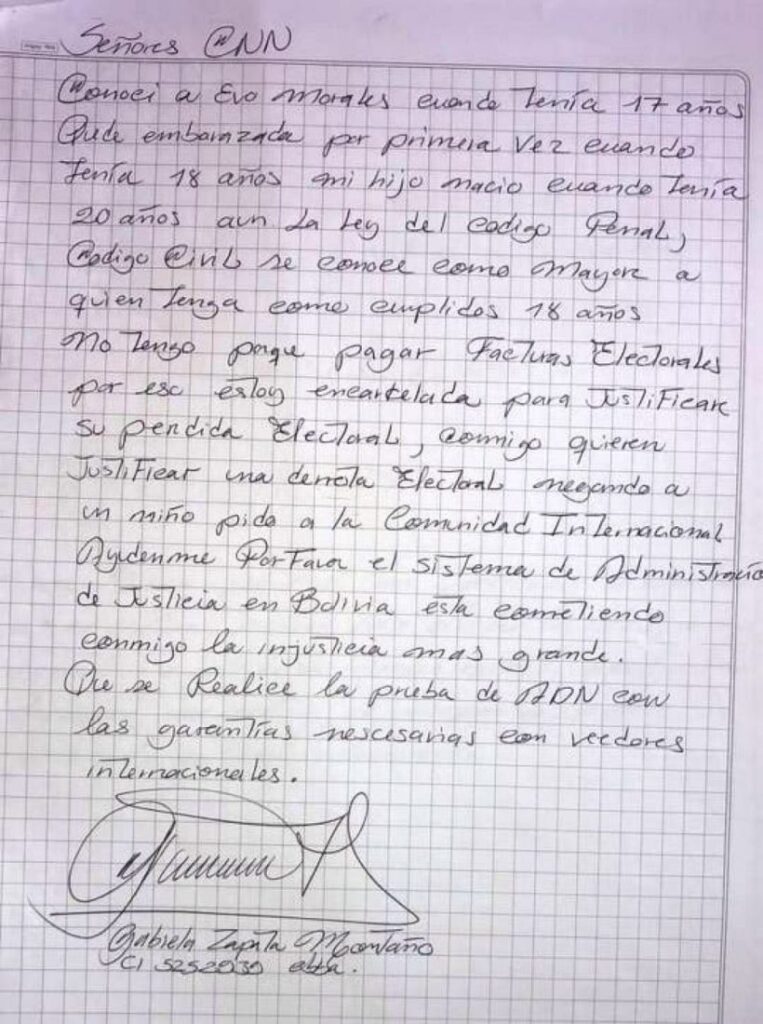 Señores CNN
Conoci a Evo Morales cuando tenía 17 años
Qude embarazada por primera vez cuando
tenía 18 años mi hijo nacio cuando tenía
20 años aun la Ley del codigo Penal,
Codigo Civil se conoce como Mayor a
quien tenga como cumplidos 18 años
No tengo pague pagar Facturas Electorales
por eso estoy encartelada para Justificar
su perdida Electoral, conmigo quieren
Justificar una derrota Electoral negando a
un niño pido a la Comunidad Internacional
Ayudenme Por Favor el sistema de Administracio
de Justicia en Bolivia esta cometiendo
conmigo la injusticia mas grande.
Que se Realice la prueba de ADN con
las garantías nescesarias con veedores
internacionales.
Gabriela Zapata Montaño
CI 5252939 cbba.